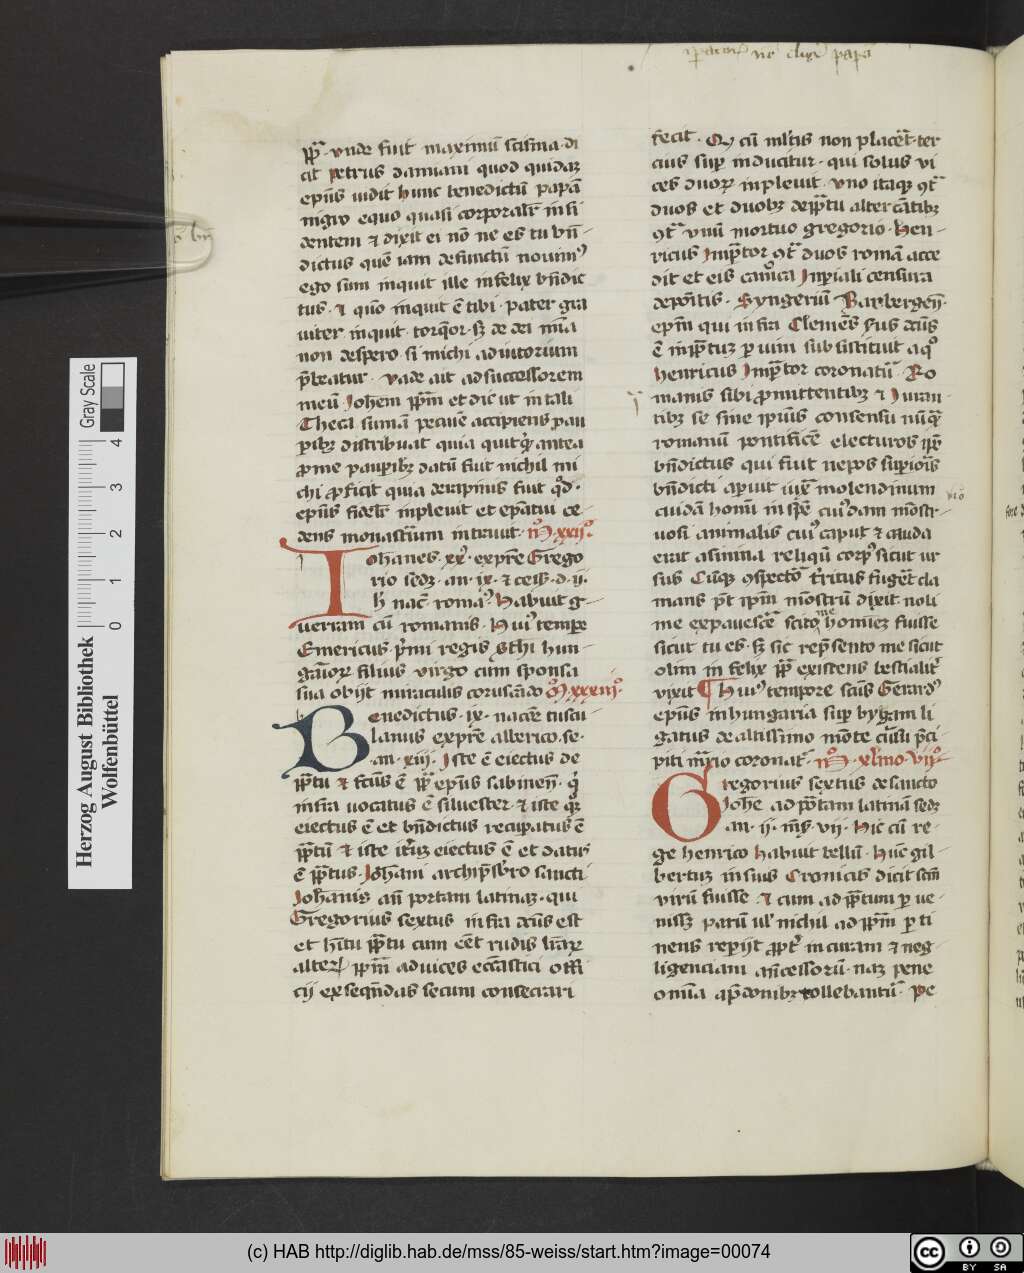 ne eligit͛ papa
pp̄. vnde fuit maximū scisma. di
cit petrus damiani quod quidaꝫ
ep̄us uidit hunc benedictū papā
nigro equo quasi corporalr̄ insi
dentem ⁊ dixit ei nō ne es tu bn̄-
dictus quē iam defunctū nouimꝰ
ego sum inquit ille infelix bn̄dic
tus. ⁊ quō inquit ē tibi. pater gra
uiter inquit torqͦor. sꝫ de dei mīa
non despero. si michi adiutorium
p̄beatur. vade ait ad successorem
meū Johem pp̄m et dic ut in tali
Theca sumā pecunie accipiens pau
ꝑibꝫ distribuat quia quitqͥd antea
ꝓ me pauꝑibꝫ datū fuit nichil mi
chi ꝓficit quia de rapinis fuit qͦd.
ep̄us fidelr̄ inpleuit et ep̄atui ce-
dens monast̄ium intrauit. Mͦ xxiiͦ.
Johanes. xxͥ. ex pr̄e Grego
rio sedꝫ. an. ix. ⁊ cess̄. d. ij.
h̄ nac̄. romāꝰ. Habuit g-
uerram cū romanis. Huiꝰ tempore
Emericus pͥmi regis Sthi hun-
gaꝝ filius virgo cum sponsa
sua obijt miraculis coruscādo Mͦ xxxiijͦ.
Benedictus. ix. nacōe tuscu-
lanus ex pr̄e alberico. se.
an. xiii. Iste ē eiectus de
pp̄tu ⁊ fc̄us ē pp̄ ep̄us sabinen̄. qͥ
infra uocatus ē siluester. ⁊ iste qͦꝫ
eiectus ē et bn̄dictus recupatus ē
pp̄tū ⁊ iste iteꝝ eiectus ē et datus
ē pp̄tus. Johāni archipr̄sbro sancti
Johānis an̄ portam latinaꝫ. qui
Gregorius sextus infra dc̄us est
et hītu pp̄tu cum eēt rudis lr̄aꝝ
alteꝝ pp̄m ad uices ecc̄astici offi
cij exseqn̄das secum consecrari
fecit. Qͦ cū mltis non placēt. ter
cius suꝑ inducitur. qui solus vi
ces duoꝝ inpleuit. vno itaqꝫ ꝯt̄
duos et duobꝫ de pp̄tu altercātibꝫ
ꝯt̄ vnū mortuo gregorio. Hen-
ricus Imꝑator ꝯt̄ duos romā acce
dit et eis canōica Inꝑiali censura
depoītis. Syngerū Banbergen̄.
ep̄m qui infra Clemēs scd̄us dc̄us
ē in pp̄tuꝫ ꝑ uim substituit a qͦ
henricus Imꝑator coronatur̄. Ro
manis sibi ꝓmittentibꝫ ⁊ Iuran
tibꝫ se sine ipsius consensu nūqͣ
romanū pontificē electuros ip̄e
bn̄dictus qui fuit nepos suꝑioris
bn̄dicti apparuit iuxͣ molendinum
cuidā homī in spē cuiꝰdam mōstr-
uosi animalis cuiꝰ caput ⁊ cauda
erat asinina reliqū corpꝰ sicut ur
sus Cūqꝫ ꝯspecto tͥritus fugēt cla
mans pt ip̄m mōstrū dixit noli
me expauescē scito me homīeꝫ fuisse
sicut tu es. sꝫ sic rep̄sento me sicut
olim in felix pp̄ existens bestialitͥ
vixit Huiꝰ tempore sc̄us Gerardꝰ
ep̄us in hungaria suꝑ bygam li
gatus de altissimo mōte cūsu p̄ci-
piti mr̄io coronat̄. Mͦ. xlmo. vijͦ.
Gregorius sextus de sancto
Johe ad portam latinā sedꝫ
an. ij. mēs. vij. Hic cū re-
ge henrico habuit bellū. Hūc gil-
bertuꝫ in suis Cronicis dicit sc̄m
virū fuisse. ⁊ cum ad pp̄tum ꝑue-
nisset parū ul̄ nichil ad pp̄m ꝑti
nens repijt ꝓpt̄ incuram ⁊ neg-
ligenciam an̄cessorū. naꝫ pene
omīa a p̄donibꝫ tollebantur̄. Pe
Herzog August Bibliothek
Wolfenbüttel
Gray Scale
0 1 2 3 4
(c) HAB http://diglib.hab.de/mss/85-weiss/start.htm?image=00074
cc BY SA